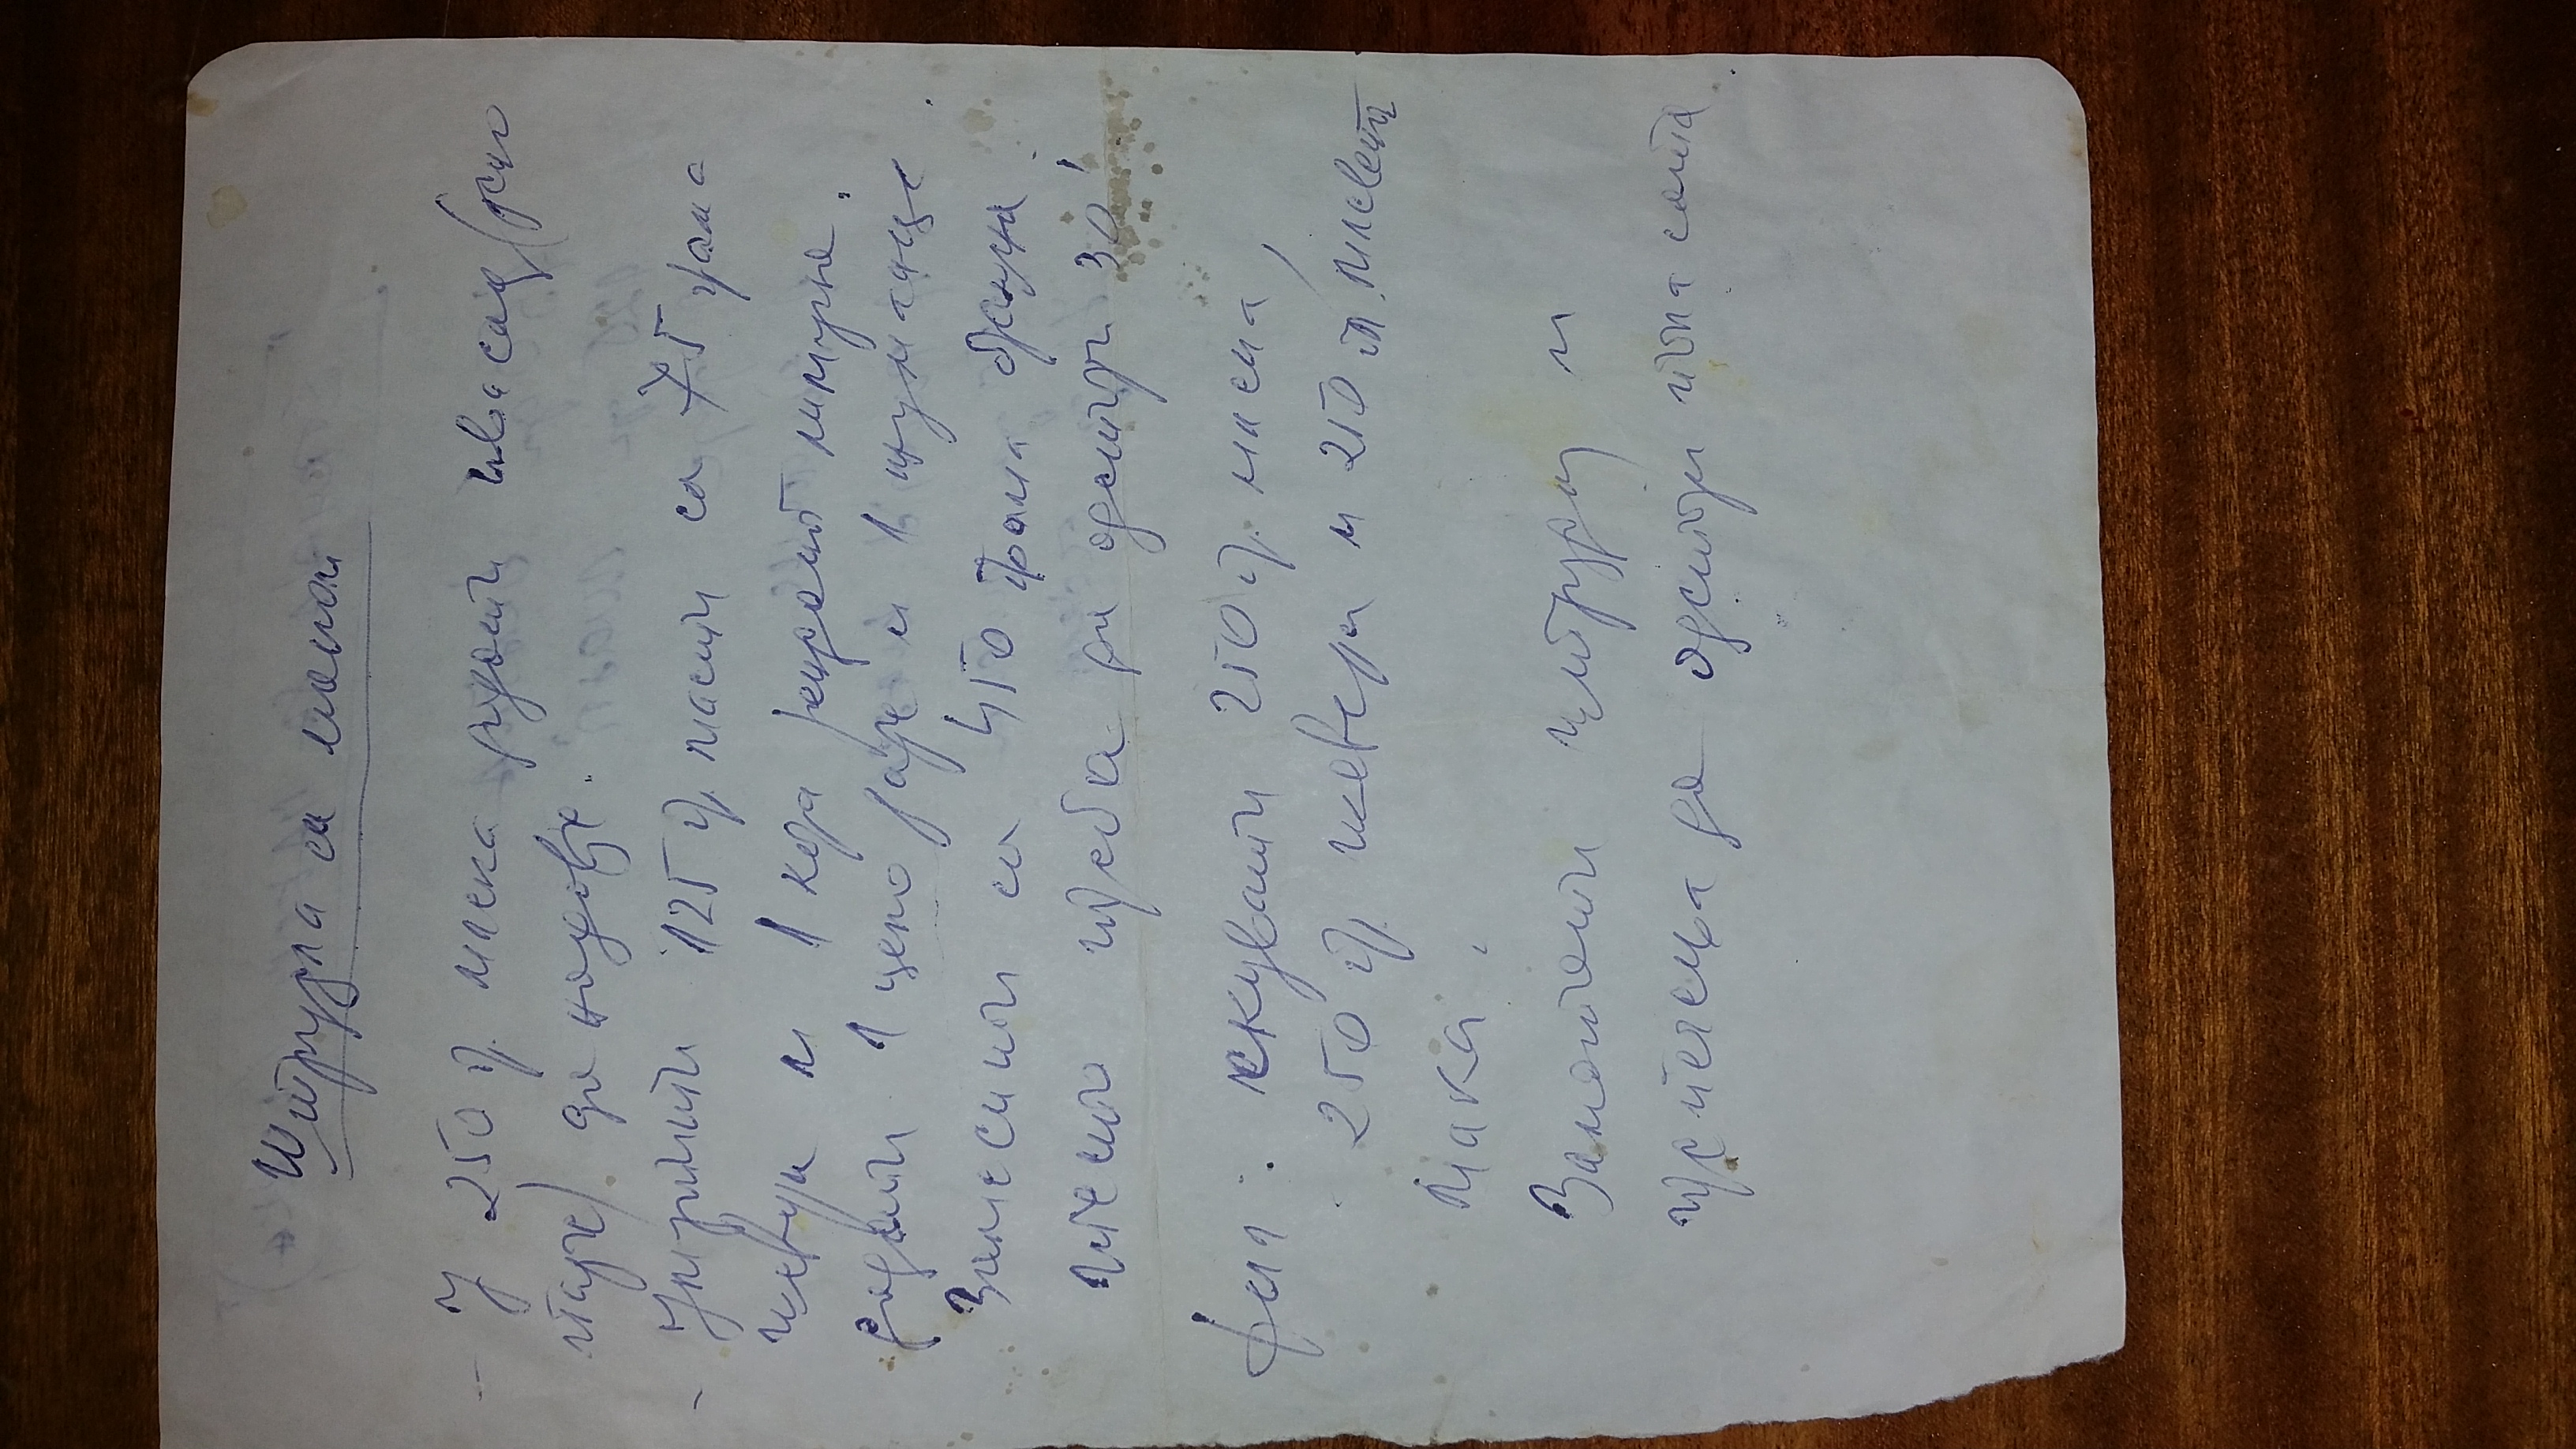 Штрудла са маком
- У 250 гр. млека додати квасац (јело
да надође.
- Умутити 125 гр. масти са 75 грама
шећера и 1 кора рендајт лимуна.
додати 1 цело јаје и 1 жуманце.
Замесити са 450 грама брашна.
тесто треба да одстоји 30'.
фил: скувати 250 гр. млека,
250 гр. шећера и 250 гр. млевеног
мака.
Замотати штрудлу и
пре печења да одстоји пола сата.